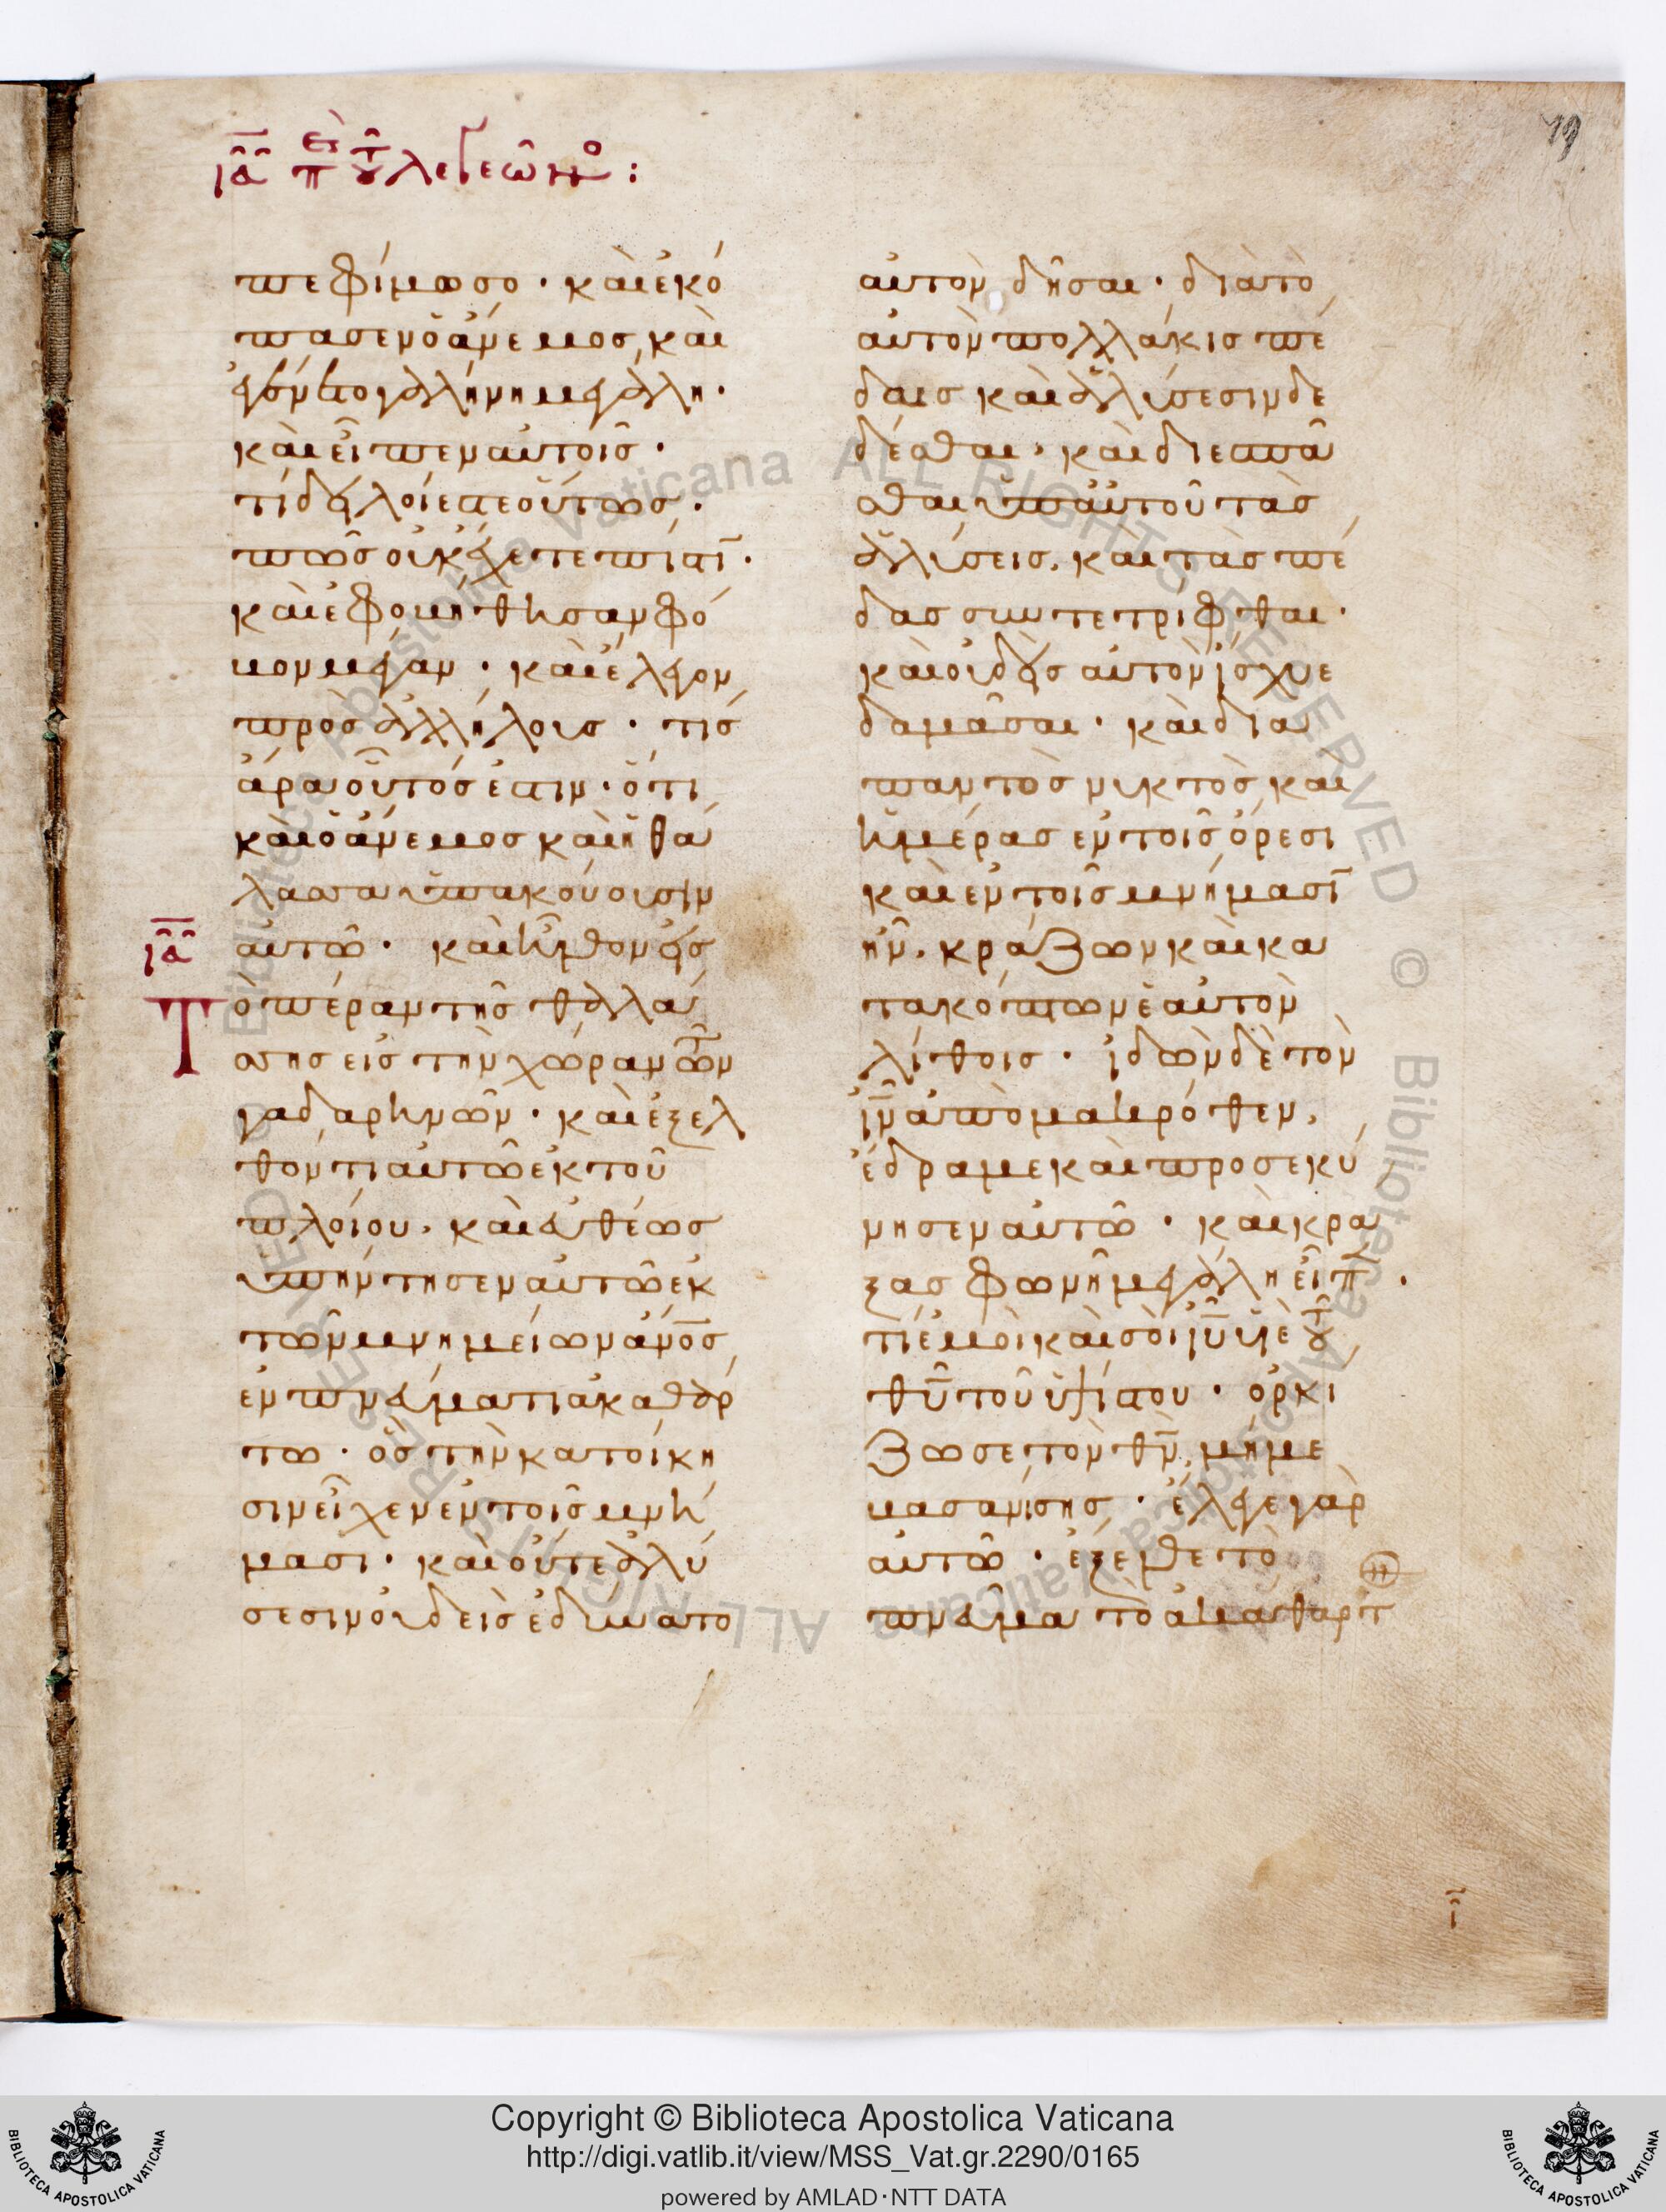 ια περὶ τοῦ λεγεῶνος:
19
πεφίμωσο · καὶ ἐκό
πασεν ὁ ἄνεμος, καὶ
ἐγένετο γαλήνη μεγάλη ·
καὶ εἶπεν αὐτοῖς ·
τί δειλοί ἐστε οὕτως ·
πῶς οὐκ ἔχετε πίστῑ ·
καὶ ἐφοβήθησαν φό
βον μέγαν · καὶ ἔλεγον
πρὸς ἀλλήλους · τίς
ἄρα οὗτός ἐστιν · ὅτι
καὶ ὁ ἄνεμος καὶ ἡ θά
λασσα ὑπακούουσιν
ια
αὐτῶ · καὶ ἦλθον εἰς
Τ
ὸ πέραν τῆς θαλάσ
σης εἰς τὴν χώραν τῶν
γαδαρηνῶν · καὶ ἐξελ
θόντι αὐτῶ ἐκ τοῦ
πλοίου, καὶ εὐθέως
ὑπήντησεν αὐτῶ ἐκ
τῶν μνημείων ἄν̅ο̅ς̅
ἐν πνεύματι ἀκαθάρ
τω · ὃς τὴν κατοίκη
σιν εἶχεν ἐν τοῖς μνή
μασι · καὶ οὔτε ἁλύ
σεσιν οὐδεὶς ἐδύνατο
αὐτὸν δῆσαι · διὰ τὸ
αὐτὸν πολλάκις πέ
δαις καὶ ἁλύσεσιν δε
δέσθαι, καὶ διεσπᾶ
σθαι ὑπ' αὐτοῦ τὰς
ἁλύσεις, καὶ τὰς πέ
δας συντετρίφθαι ·
καὶ οὐδεὶς αὐτὸν ἴσχυε
δαμᾶσαι · καὶ δια
παντὸς νυκτὸς καὶ
ἡμέρας ἐν τοῖς ὄρεσι
καὶ ἐν τοῖς μνήμασῑ
ἦν, κράζων καὶ κα
τακόπτων ἑαυτὸν
λίθοις · ἰδὼν δὲ τὸν
ι̅ν̅ ἀπὸ μακρόθεν,
ἔδραμε καὶ προσεκύ
νησεν αὐτῶ · καὶ κρά
ξας φωνῆ μεγάλη εἶπε ·
τί ἐμοὶ καὶ σοὶ ι̅υ̅ υἱὲ τοῦ
θ̅υ̅ τοῦ ὑψίστου · ὁρκί
ζω σε τὸν θ̅ν̅, μή με
βασανίσης · ἔλεγε γὰρ
αὐτῶ · ἔξελθε τὸ
πνεῦμα τὸ ἀκάθαρτ
ι
Copyright © Biblioteca Apostolica Vaticana
http://digi.vatlib.it/view/MSS_Vat.gr.2290/0165
powered by AMLAD·NTT DATA